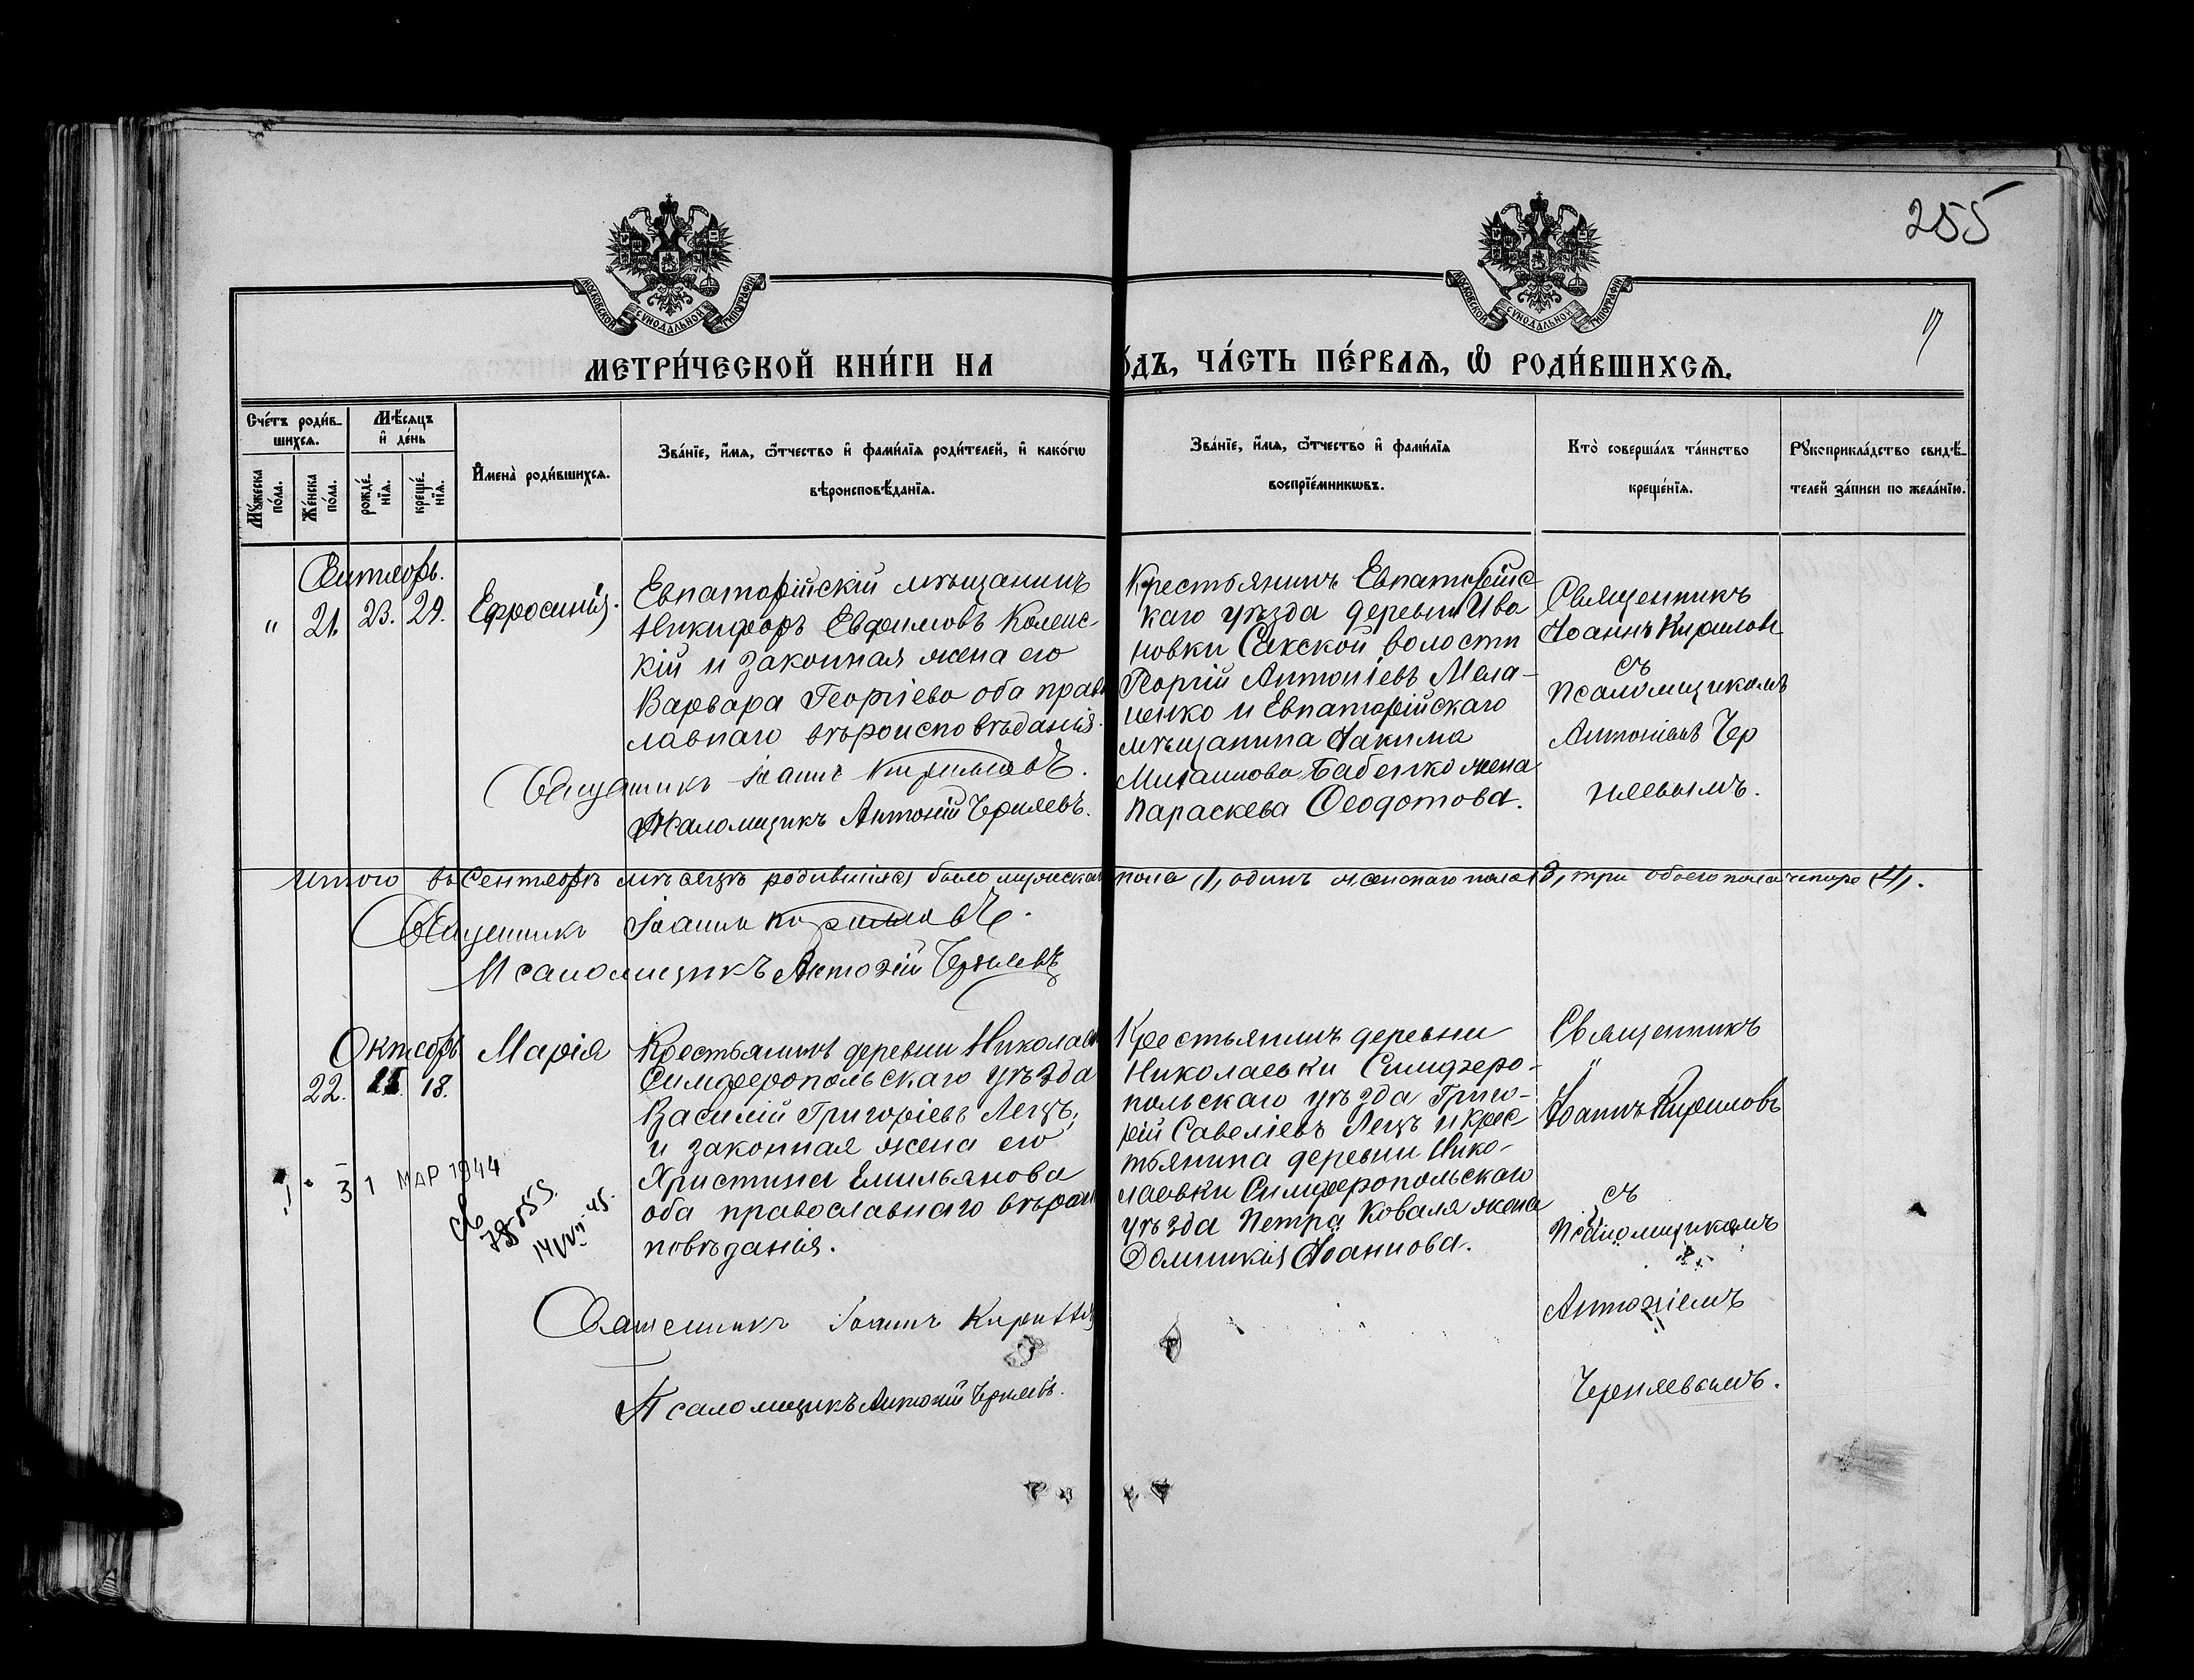 255
МОСКОВСКОЙ СѴНОДАЛЬНОЙ ТИПОГРАФІИ
МОСКОВСКОЙ СѴНОДАЛЬНОЙ ТИПОГРАФІИ
МЕТРИ́ЧЕСКОЙ КНИ́ГИ НА
О́ДЪ, ЧА́СТЬ ПЕ́РВАѦ, Ѽ РОДИ́ВШИХСѦ.
Сче́тъ роди́в-
шихсѧ.
Мꙋ́жеска по́ла.
Же́нска по́ла.
Мѣ́сѧцъ
и҆ де́нь
рожде́-
нїѧ.
креще́-
нїѧ.
И҆мена̀ роди́вшихсѧ.
Зва́нїе, и҆́мѧ, ѻ҆́тчество и҆ фами́лїѧ роди́телей, и҆ како́гѡ
вѣроисповѣ́данїѧ.
Зва́нїе, и҆́мѧ, ѻ҆́тчество и҆ фами́лїѧ
воспрїе́мникѡвъ.
Кто̀ соверша́лъ та́инство
креще́нїѧ.
Рꙋкоприкла́дство свидѣ́-
телей за́писи по жела́нїю.
Сентябрь.
" 21. 23. 29.
Ефросинія.
Евпаторійскій мѣщанинъ
Никифоръ Евфимовъ Коленс-
кій и законная жена его
Варвара Георгіева оба прав
лавнаго вѣроисповѣданія.
Священникъ Іоаннъ Кириловъ.
Псаломщикъ Антоній Черняевъ.
Крестьянинъ Евпаторійс-
каго уѣзда деревни Ива
новки Сакской волости
Георгій Антоніевъ Мела-
ненко и Евпаторійскаго
мѣщанина Іакима
Михаилова Бабенко жена
Параскева Ѳеодотова.
Священникъ
Іоаннъ Кириловъ
съ
псаломщикомъ
Антоніемъ Чер
няевымъ.
Итого въ Сентябрѣ мѣсяцѣ родившихся было мужеска пола (1) одинъ женскаго пола (3) три обоего пола четыре (4).
Священникъ Іоаннъ Кириловъ.
Псаломщикъ Антоній Черняевъ
Октябрь
22. 15. 18.
Марія
Крестьянинъ деревни Николаев
Симферопольскаго уѣзда
Василій Григоріевъ Легзъ,
и законная жена его
Христина Емильянова
оба православнаго вѣрои
повѣданія.
Священникъ Іоаннъ Кирил
Псаломщикъ Антоній Черняевъ.
Крестьянинъ деревни
Николаевки Симферо-
польскаго уѣзда Григо-
рій Савеліевъ Легзъ и крес-
тьянина деревни Нико-
лаевки Симферопольскаго
уѣзда Петра Коваля жена
Домникія Іоаннова.
Священникъ
"
Іоаннъ Кириловъ
съ
Псаломщикомъ
Антоніемъ
Черняевымъ.
31 МАР 1944